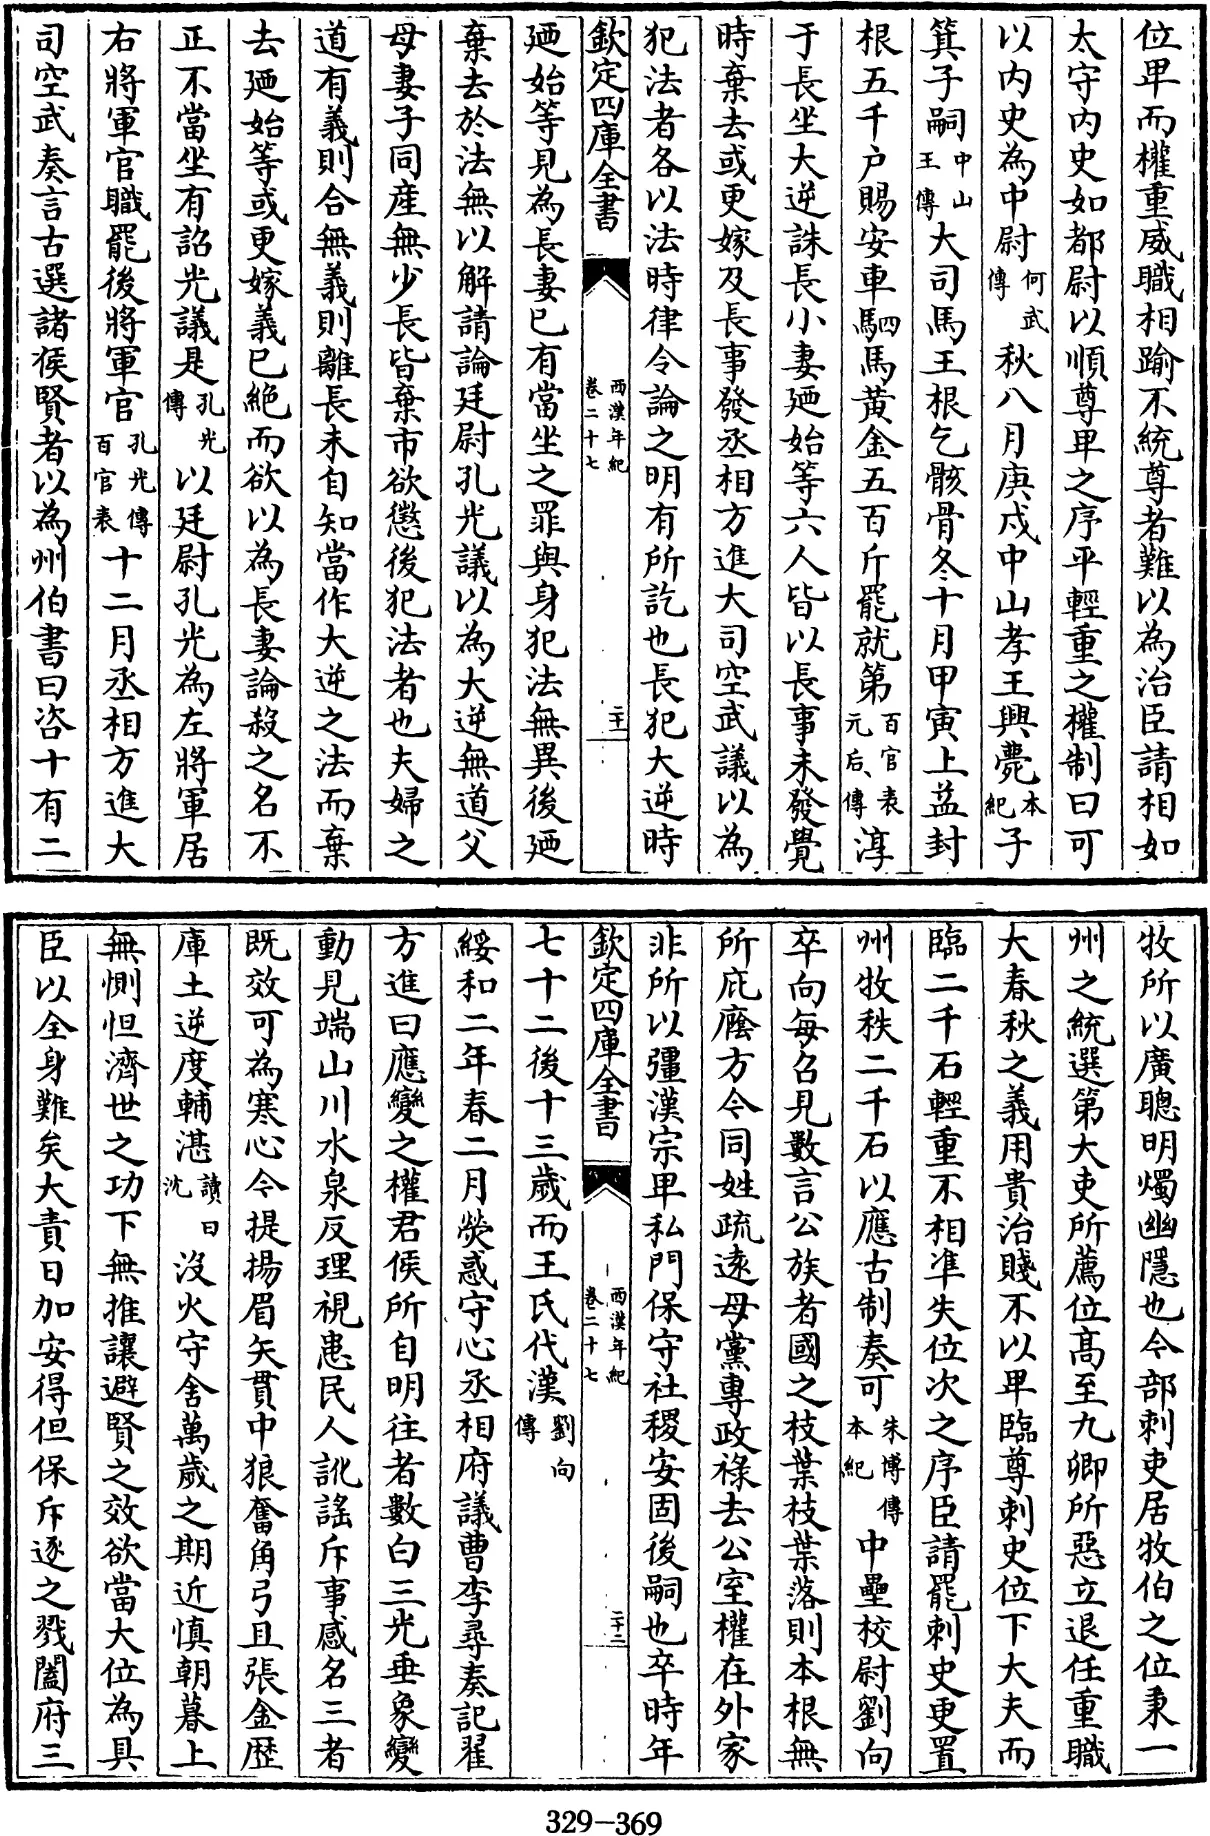 位卑而權重威職相踰不統尊者難以為治臣請相如
太守内史如都尉以順尊卑之序平輕重之權制曰可
以内史為中尉何武傳秋八月庚戌中山孝王興薨本紀子
箕子嗣中山王傳大司馬王根乞骸骨冬十月甲寅上益封
根五千户賜安車駟馬黄金五百斤罷就第百官表元后傳淳
于長坐大逆誅長小妻廼始等六人皆以長事未發覺
時棄去或更嫁及長事發丞相方進大司空武議以為
犯法者各以法時律令論之明有所訖也長犯大逆時
欽定四庫全書
西漢年紀
卷二十七
二十一
廼始等見為長妻已有當坐之罪與身犯法無異後廼
棄去於法無以解請論廷尉孔光議以為大逆無道父
母妻子同産無少長皆棄市欲懲後犯法者也夫婦之
道有義則合無義則離長未自知當作大逆之法而棄
去廼始等或更嫁義已絶而欲以為長妻論殺之名不
正不當坐有詔光議是孔光傳以廷尉孔光為左將軍居
右將軍官職罷後將軍官孔光傳百官表十二月丞相方進大
司空武奏言古選諸侯賢者以為州伯書曰咨十有二
牧所以廣聰明燭幽隱也今部刺史居牧伯之位秉一
州之統選第大吏所薦位髙至九卿所惡立退任重職
大春秋之義用貴治賤不以卑臨尊刺史位下大夫而
臨二千石輕重不相凖失位次之序臣請罷刺史更置
州牧秩二千石以應古制奏可朱博傳本紀中壘校尉劉向
卒向每召見數言公族者國之枝葉枝葉落則本根無
所庇廕方今同姓疏逺母黨專政祿去公室權在外家
非所以彊漢宗卑私門保守社稷安固後嗣也卒時年
欽定四庫全書
西漢年紀
卷二十七
二十二
七十二後十三歲而王氏代漢劉向傳
綏和二年春二月熒惑守心丞相府議曹李尋奏記翟
方進曰應變之權君侯所自明往者數白三光垂象變
動見端山川水泉反理視患民人訛謡斥事感名三者
既效可為寒心今提揚眉矢貫中狼奮角弓且張金歴
庫土逆度輔湛讀曰沈沒火守舍萬歲之期近慎朝暮上
無惻怛濟世之功下無推讓避賢之效欲當大位為具
臣以全身難矣大責日加安得但保斥逐之戮闔府三
329-369